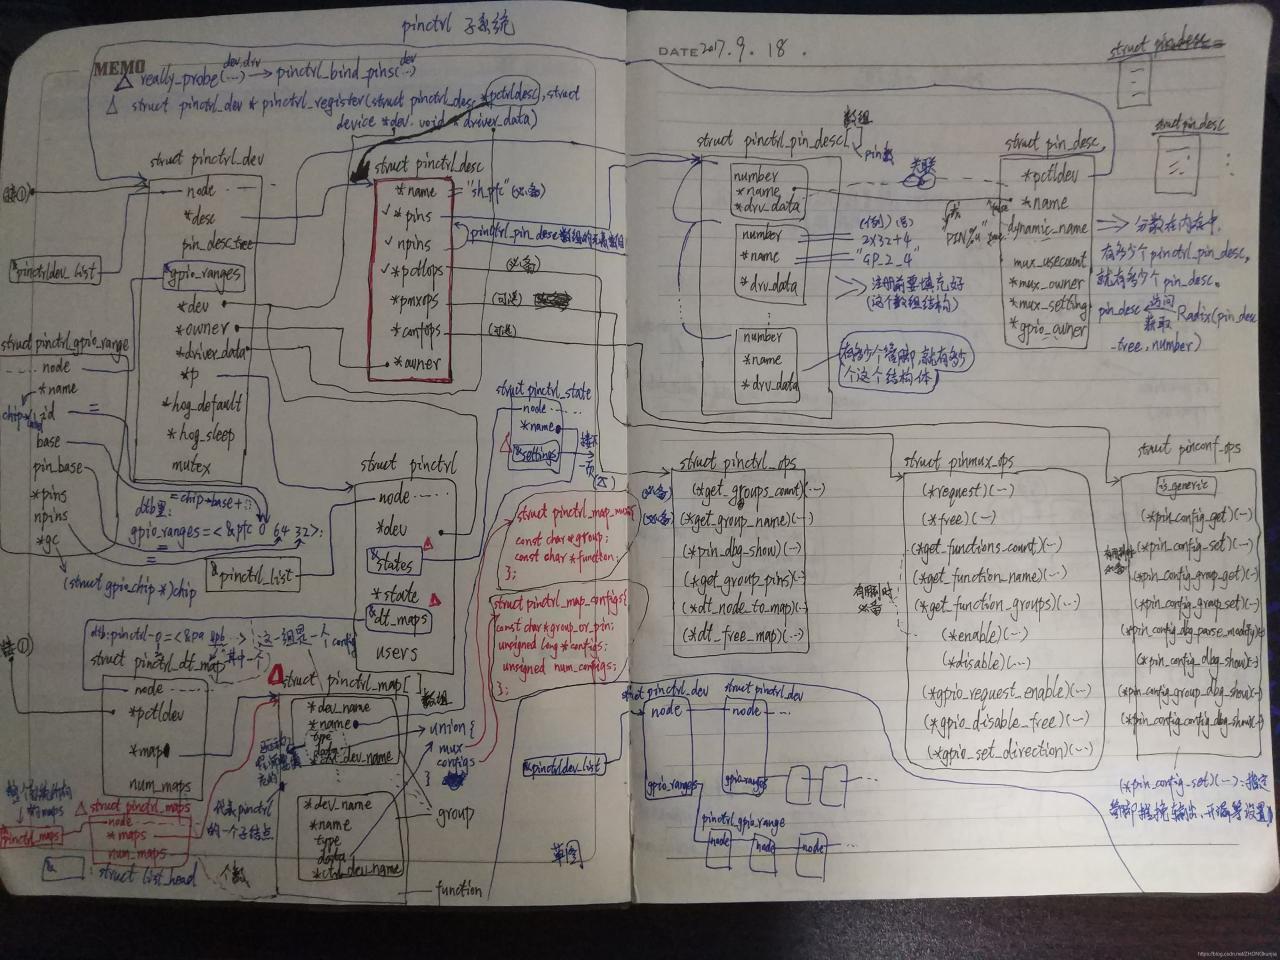 pinctrl 子系统
MEMO
DATE 2017.9.18.
△ really_probe(...) → pinctrl_bind_pins(...)
dev,drv
dev
△ struct pinctrl_dev * pinctrl_register(struct pinctrl_desc *pctrldesc, struct
device *dev, void * driver_data)
struct pinctrl_dev
node
*desc
pin_desc_tree
gpio_ranges
*dev
*owner
*driver_data
*p
*hog_default
*hog_sleep
mutex
接①
pinctrldev_list
struct pinctrl_desc
*name = "sh_pfc" (必备)
✓ *pins
✓ npins
✓ *pctlops (必备)
*pmxops (可选)
*confops (可选)
*owner
struct pinctrl_gpio_range
node
*name
id
base
pin_base
*pins
npins
*gc
(struct gpio_chip *)chip
dtb里:
= chip→base+
gpio_ranges = <&pfc 0 64 32>;
pinctrl_list
struct pinctrl
node
*dev
states
*state
dt_maps
users
struct pinctrl_state
node
*name
settings
struct pinctrl_map_mux{
const char *group;
const char *function;
};
struct pinctrl_map_configs{
const char *group_or_pin;
unsigned long *configs;
unsigned num_configs;
};
struct pinctrl_dt_map
node
*pctldev
*map
num_maps
接①
struct pinctrl_map[ ]
数组
*dev_name
*name
type
data
*ctrl_dev_name
union{
mux
configs
}
group
*dev_name
*name
type
data
*ctrl_dev_name
function
struct pinctrl_maps
node
*maps
num_maps
pinctrl_maps
代表pinctrl
的一个子结点
: struct list_head
个数
草图
struct pinctrl_pin_desc[ ]
数组
pin数
number
*name
*drv_data
number
*name
*drv_data
number
*name
*drv_data
(例)
2X32+4
"GP_2_4"
注册前要填充好
(这个数组结构)
有多少个管脚,就有多少
个这个结构体
关联
struct pin_desc
struct pin_desc
*pctldev
*name
dynamic_name
mux_usecount
*mux_owner
*mux_setting
*gpio_owner
分散在内存中,
有多少个pinctrl_pin_desc,
就有多少个pin_desc。
pin_desc 访问获取 Radix(pin_desc
_tree, number)
struct pinctrl_ops
(*get_groups_count)(...)
(*get_group_name)(...)
(*pin_dbg_show)(...)
(*get_group_pins)(...)
(*dt_node_to_map)(...)
(*dt_free_map)(...)
(必备)
(必备)
struct pinmux_ops
(*request)(...)
(*free)(...)
(*get_functions_count)(...)
(*get_function_name)(...)
(*get_function_groups)(...)
(*enable)(...)
(*disable)(...)
(*gpio_request_enable)(...)
(*gpio_disable_free)(...)
(*gpio_set_direction)(...)
有用到时
必备
struct pinconf_ops
is_generic
(*pin_config_get)(...)
(*pin_config_set)(...)
(*pin_config_group_get)(...)
(*pin_config_group_set)(...)
(*pin_config_dbg_parse_modify)(...)
(*pin_config_dbg_show)(...)
(*pin_config_group_dbg_show)(...)
(*pin_config_config_dbg_show)(...)
struct pinctrl_dev
struct pinctrl_dev
node
node
gpio_ranges
gpio_ranges
pinctrldev_list
pinctrl_gpio_range
node
node
node
https://blog.csdn.net/ZHONGkunjia